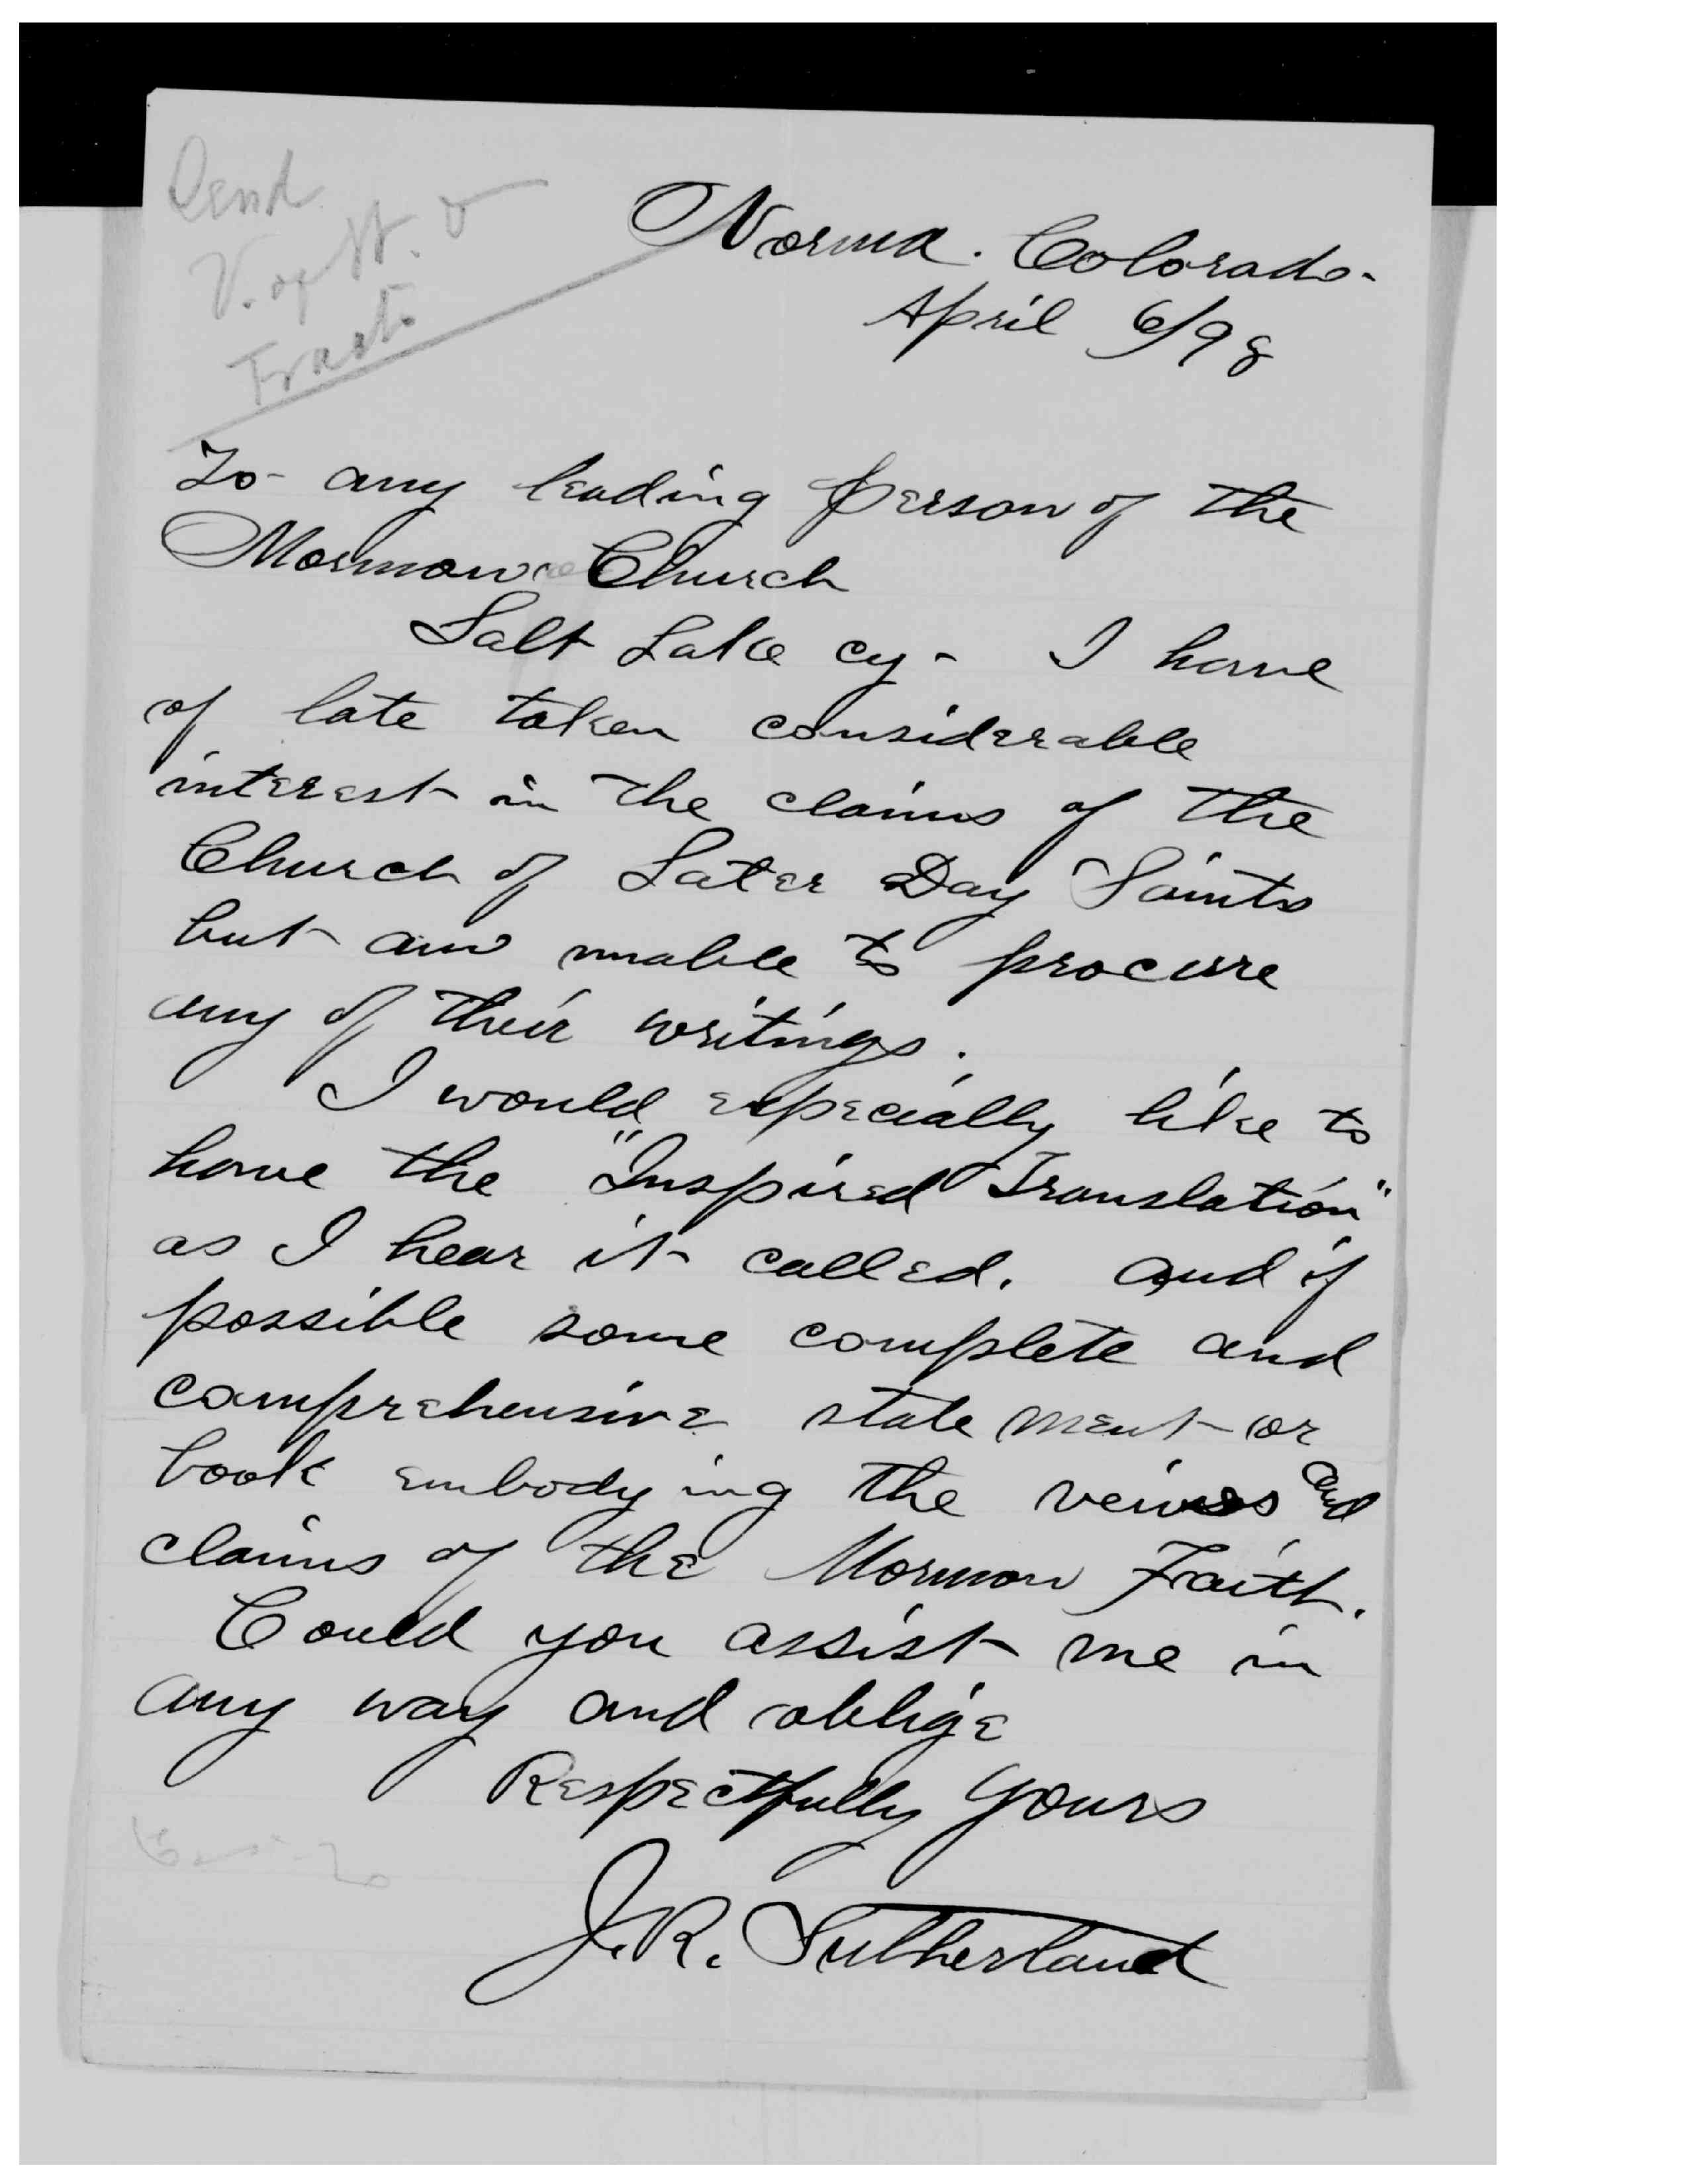 Send
V. of W. &
Tracts
Norma. Colorado-
April 6/98
To any leading person of the
Mormon Church
Salt Lake cy - I have
of late taken considerable
interest in the claims of the
Church of Later Day Saints
but am unable to procure
any of their writings.
I would especially like to
have the "Inspired Translation"
as I hear it called. and if
possible some complete and
comprehensive state ment or
book embodying the veiws and
claims of the Mormon Faith.
Could you assist me in
any way and oblige
Respectfully Yours
J. R. Sutherland